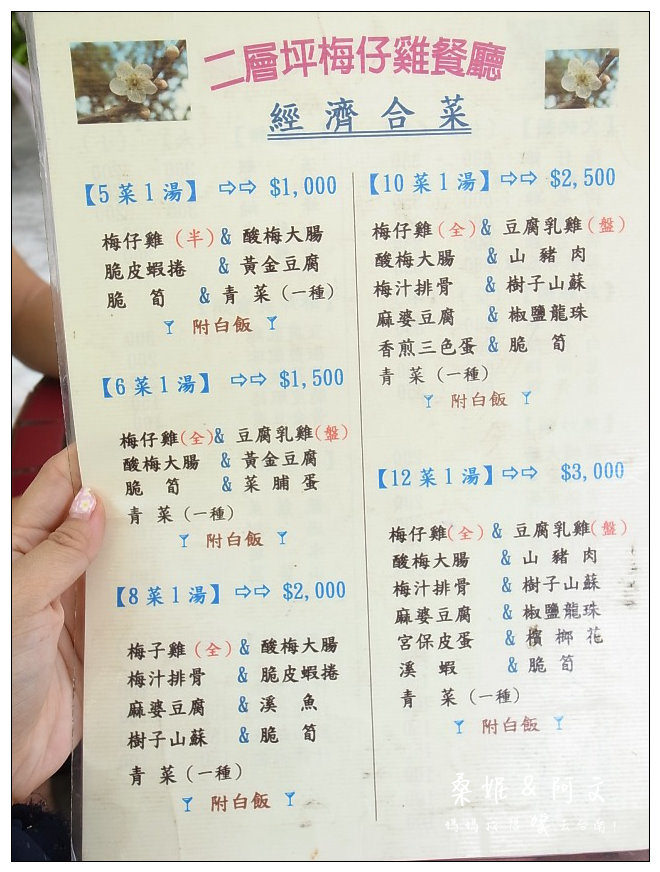 二層坪梅仔雞餐廳
經濟合菜
【5菜1湯】 ⇨⇨ $1,000
梅仔雞(半) & 酸梅大腸
脆皮蝦捲 & 黃金豆腐
脆筍 & 青菜(一種)
附白飯
【6菜1湯】 ⇨⇨ $1,500
梅仔雞(全) & 豆腐乳雞(盤)
酸梅大腸 & 黃金豆腐
脆筍 & 菜脯蛋
青菜(一種)
附白飯
【8菜1湯】 ⇨⇨ $2,000
梅子雞(全) & 酸梅大腸
梅汁排骨 & 脆皮蝦捲
麻婆豆腐 & 溪魚
樹子山蘇 & 脆筍
青菜(一種)
附白飯
【10菜1湯】 ⇨⇨ $2,500
梅仔雞(全) & 豆腐乳雞(盤)
酸梅大腸 & 山豬肉
梅汁排骨 & 樹子山蘇
麻婆豆腐 & 椒鹽龍珠
香煎三色蛋 & 脆筍
青菜(一種)
附白飯
【12菜1湯】 ⇨⇨ $3,000
梅仔雞(全) & 豆腐乳雞(盤)
酸梅大腸 & 山豬肉
梅汁排骨 & 樹子山蘇
麻婆豆腐 & 椒鹽龍珠
宮保皮蛋 & 檳榔花
溪蝦 & 脆筍
青菜(一種)
附白飯
桑妮&阿文